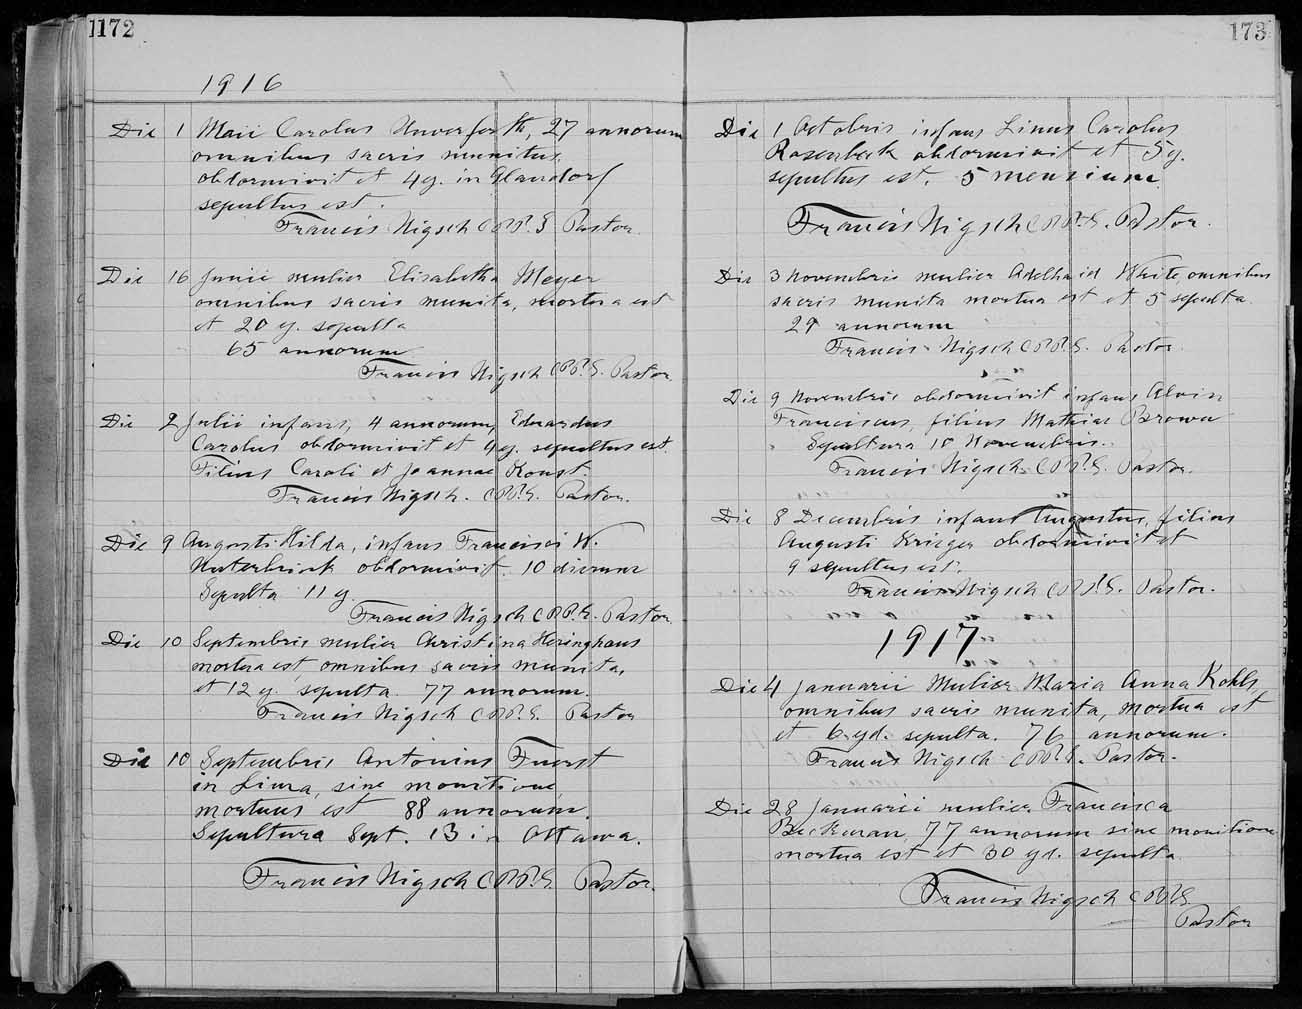 1172
1916
Die 1 Maii Carolus Unverferth, 27 annorum
omnibus sacris munitus
obdormivit et 4 ej. in Glandorf
sepultus est.
Francis Nigsch C.PP.S Pastor
Die 16 Junii mulier Elisabetha Meyer
omnibus sacris munita, mortua est
et 20 ej. sepulta
65 annorum
Francis Nigsch C.PP.S. Pastor
Die 2 Julii infans, 4 annorum, Eduardus
Carolus obdormivit et 4 ej. sepultus est
Filius Caroli et Joannae Konst
Francis Nigsch. C.PP.S. Pastor.
Die 9 Augusti Hilda, infans Francisci W.
obdormivit. 10 dierum
Sepulta 11 ej.
Francis Nigsch C.PP.S. Pastor
Die 10 Septembris mulier Christina Heringhaus
mortua est, omnibus sacris munita,
et 12 ej. sepulta 77 annorum.
Francis Nigsch C.PP.S. Pastor
Die 10 Septembris Antonius Fuerst
in Lima, sine monitione
mortuus est 88 annorum.
Sepultura Sept. 13 in Ottawa.
Francis Nigsch C.PP.S. Pastor.
173
Die 1 Octobris infans Linus Carolus
Rosenbeck obdormivit et 5 ej.
sepultus est. 5 mensium
Francis Nigsch C.PP.S. Pastor.
Die 3 Novembris mulier Adelhaid Waite, omnibus
sacris munita mortua est et 5 sepulta
29 annorum
Francis Nigsch C.PP.S. Pastor
Die 9 Novembris obdormivit infans Alvin
Franciscus, filius Mathiae Brown
Sepultura 10 Novembris.
Francis Nigsch C.PP.S. Pastor.
Die 8 Decembris infans Augustus, filius
Augusti Krieger obdormivit et
9 sepultus est.
Francis Nigsch C.PP.S. Pastor.
1917
Die 4 Januarii Mulier Maria Anna Kohls,
omnibus sacris munita, mortua est
et 6 ejd. sepulta. 76 annorum.
Francis Nigsch C.PP.S. Pastor.
Die 28 Januarii mulier Francisca
Beckman, 77 annorum sine monitione
mortua est et 30 ejd. sepulta
Francis Nigsch C.PP.S.
Pastor